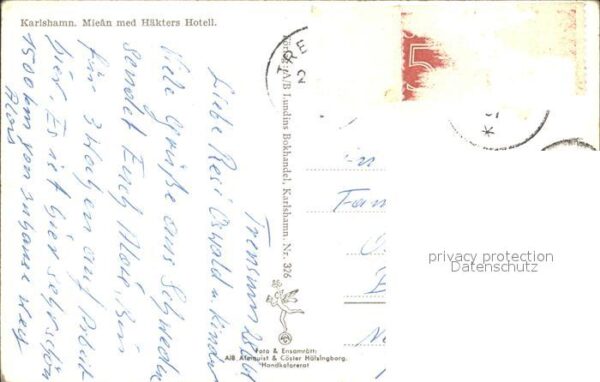 Karlshamn. Mieån med Häkters Hotell.
Liebe Resi Oswald u. Kinder
Viele Grüße aus Schweden
sendet Euch Alois, bin
für 3 Wochen auf Arbeit
hier. Es ist hier sehr schön
1500 km von zuhause weg
Alois
Förlag: A/B Lundins Bokhandel, Karlshamn. Nr. 326
Foto & Ensamrätt:
A/B Almquist & Cöster Hälsingborg.
Handkolorerat
TRE
2
5
K S
in
Fam
privacy protection
Datenschutz